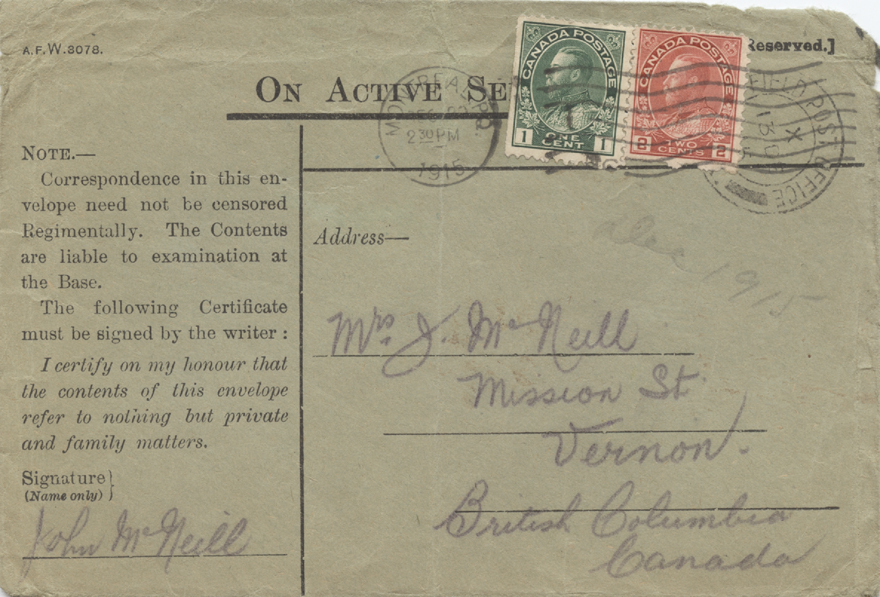 A.F.W.3078.
Reserved.]
ON ACTIVE SE
MONTREAL, P.Q.
2 30 PM
1915
CANADA POSTAGE
1 ONE CENT 1
CANADA POSTAGE
2 TWO CENTS 2
FIELD POST OFFICE
NOTE.—
Correspondence in this en-
velope need not be censored
Regimentally. The Contents
are liable to examination at
the Base.
The following Certificate
must be signed by the writer :
I certify on my honour that
the contents of this envelope
refer to nothing but private
and family matters.
Signature }
(Name only)
John McNeill
Address—
Dec 1915
Mrs. J. McNeill
Mission St.
Vernon.
British Columbia
Canada